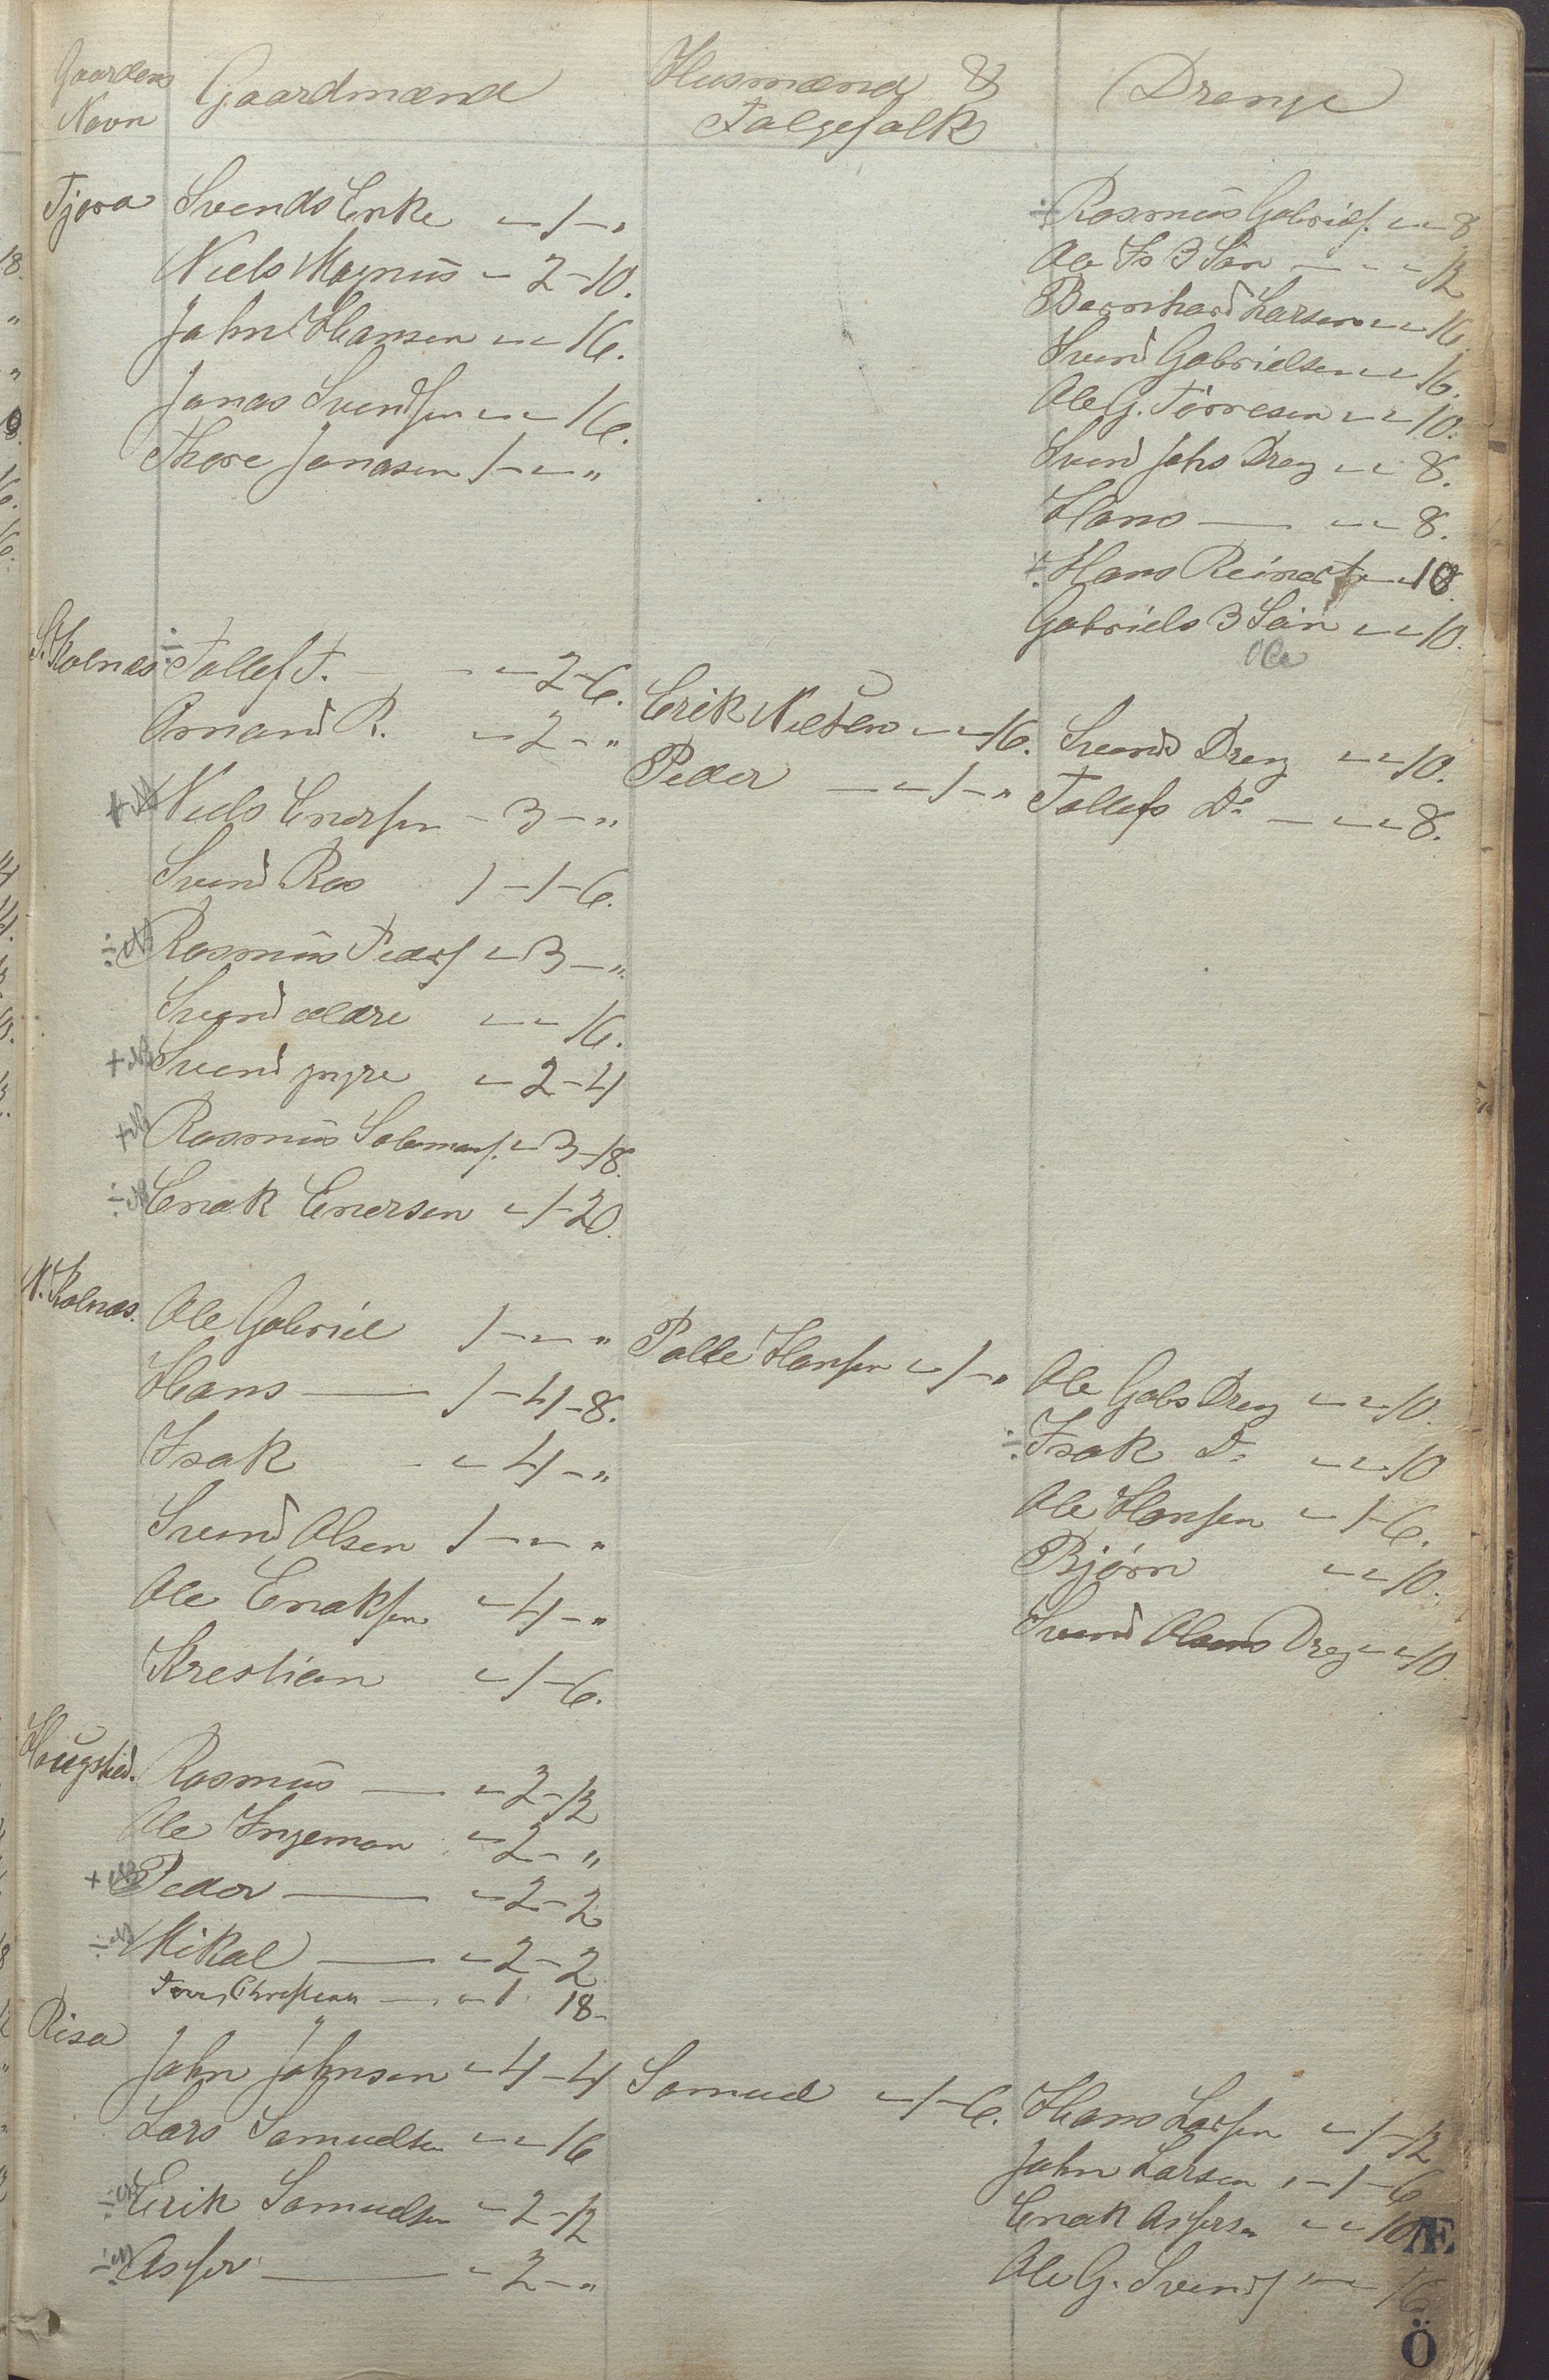 Gaardens Navn
Gaardmænd
Husmænd & Følgefolk
Drenge
Tjora
Svends Enke " 1 "
Niels Magnus " 2 - 10.
Jahn Hansen " " 16.
Jonas Svendsen " " 16.
Thore Jonasen 1 - " "
÷ Rasmus Gabriels. " " 8.
Ole Is 3 Søn " " 12
Bernhard Larsen " " 16.
Svend Gabrielsen " " 16.
Ole G. Tørresen " " 10.
Svend Jahs Dreng " " 8.
Hans " " 8.
÷ Hans Reinert " 18.
Gabriels 3 Søn " " 10.
Ole
S. Kolnæs
÷ Tollef T. " 2 - 6.
Omund R. " 2 - "
+ NB Niels Enersen - 3 - "
Svend Ras 1 - 1 - 6.
÷ NB Rasmus Peders " 3 - "
Svend ældre " " 16.
+ NB Svend yngre " 2 - 4
+ NB Rasmus Salamons. " 3 - 18.
÷ NB Enok Enersen " 1 - 20.
Erik Nielsen " " 16.
Peder " 1 - "
Svends Dreng " " 10.
Tollefs Do " " 8.
N. Kolnæs.
Ole Gabriel 1 - " "
Hans 1 - 4 - 8.
Isak " 4 - "
Svend Olsen 1 - " "
Ole Enoksen " 4 - "
Krestian " 1 - 6.
Palle Hansen " 1 - "
Ole Gabs Dreng " " 10.
÷ Isak Do " " 10
Ole Hansen " 1 - 6.
Bjørn " " 10.
Svend Olsens Dreng " " 10.
Haugstad.
Rasmus " 2 - 12
Ole Ingeman " 2 - "
+ NB Peder " 2 - 2
÷ NB Mikal " 2 - 2
Christian " 1 18 -
Risa
Jahn Johnsen " 4 - 4
Lars Samuelsen " " 16
÷ NB Erik Samuelsen " 2 - 12
÷ NB Asser " 2 - "
Samuel " 1 - 6.
Hans Larsen " 1 - 12
John Larsen " 1 - 6
Enok Assersen " " 10
Ole G. Svends " " 16
Æ
Ö